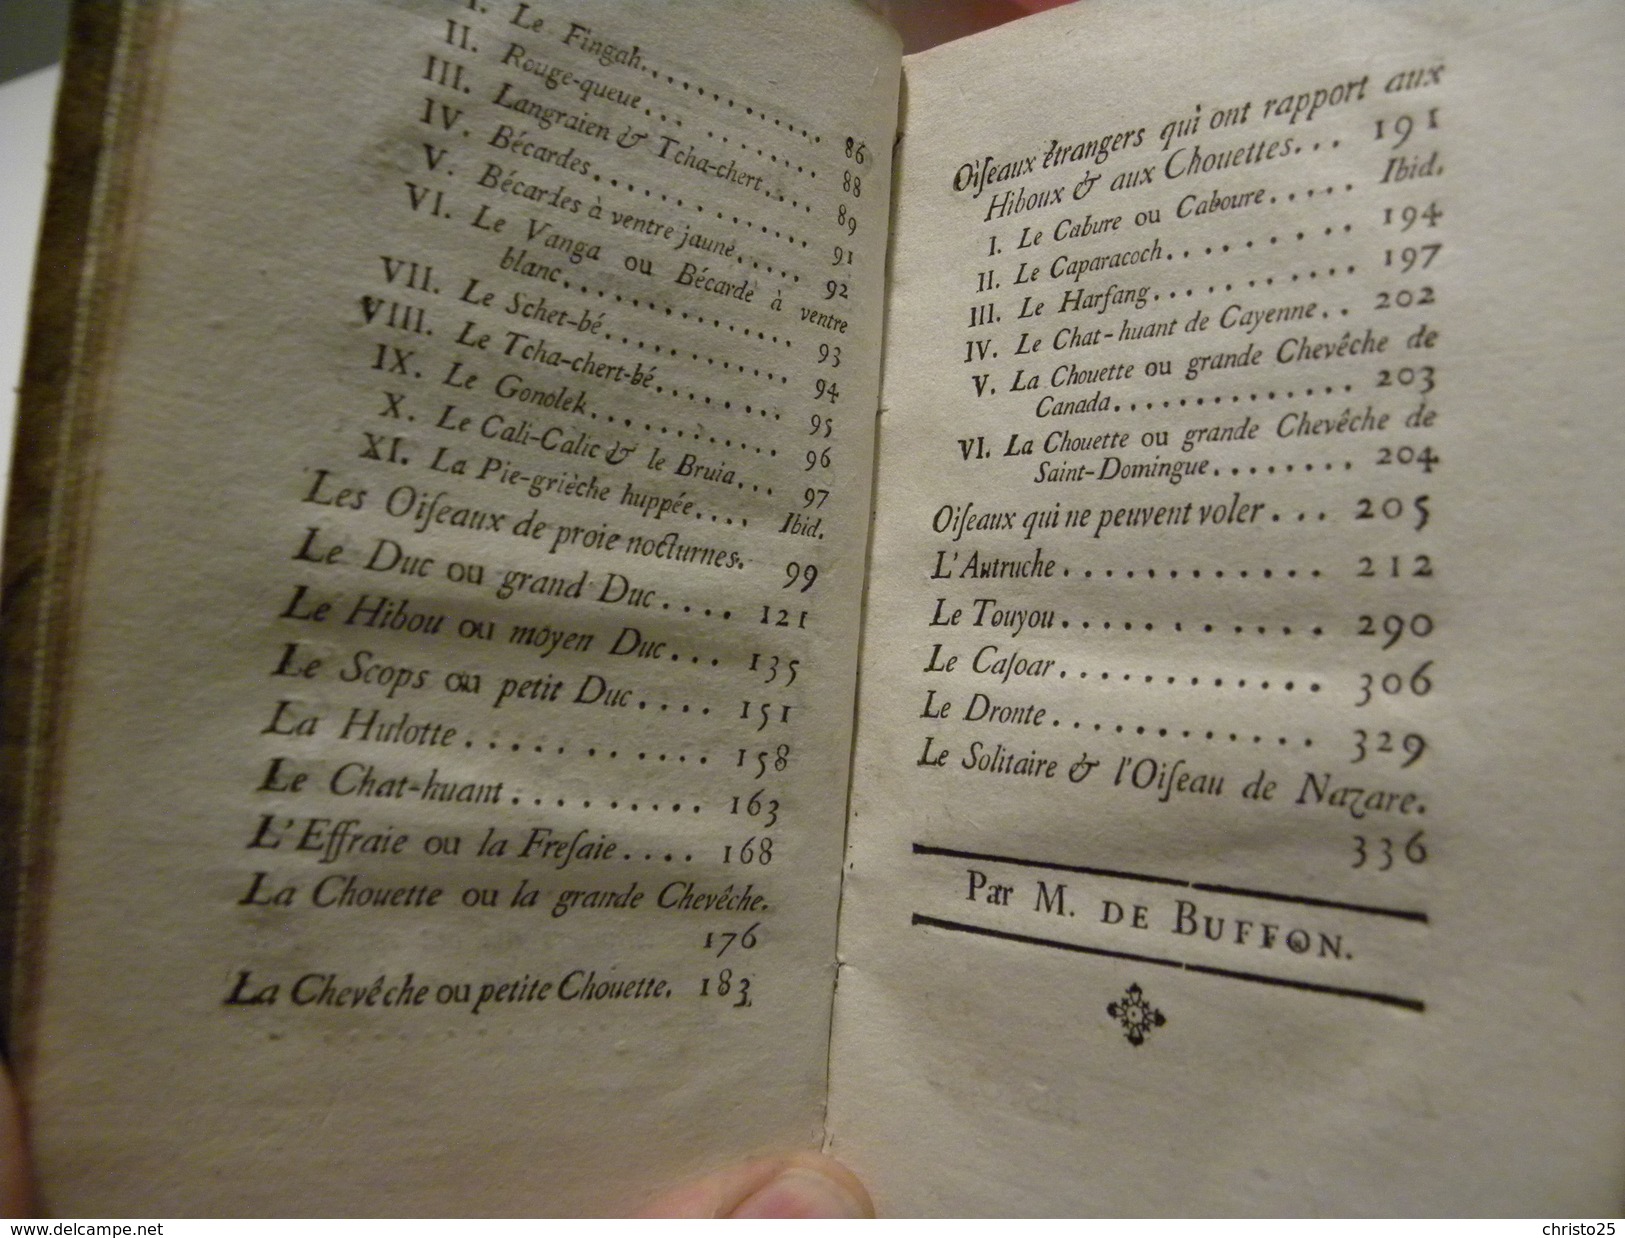 I. Le Fingah............. 86
II. Rouge-queue............ 88
III. Langraien & Tcha-chert.... 89
IV. Bécardes.............. 91
V. Bécardes à ventre jaune..... 92
VI. Le Vanga ou Bécarde à ventre
blanc.............. 93
VII. Le Schet-bé............ 94
VIII. Le Tcha-chert-bé........ 95
IX. Le Gonolek............ 96
X. Le Cali-Calic & le Bruia... 97
XI. La Pie-grièche huppée.... Ibid.
Les Oiſeaux de proie nocturnes. 99
Le Duc ou grand Duc.... 121
Le Hibou ou moyen Duc... 135
Le Scops ou petit Duc.... 151
La Hulotte........... 158
Le Chat-huant......... 163
L'Effraie ou la Freſaie.... 168
La Chouette ou la grande Chevêche.
176
La Chevêche ou petite Chouette. 183
Oiſeaux étrangers qui ont rapport aux
Hiboux & aux Chouettes... 191
I. Le Cabure ou Caboure..... Ibid.
II. Le Caparacoch......... 194
III. Le Harfang........... 197
IV. Le Chat-huant de Cayenne.. 202
V. La Chouette ou grande Chevêche de
Canada.............. 203
VI. La Chouette ou grande Chevêche de
Saint-Domingue........ 204
Oiſeaux qui ne peuvent voler... 205
L'Autruche............ 212
Le Touyou............ 290
Le Caſoar............ 306
Le Dronte............ 329
Le Solitaire & l'Oiſeau de Nazare.
336
Par M. DE BUFFON.
www.delcampe.net
christo25